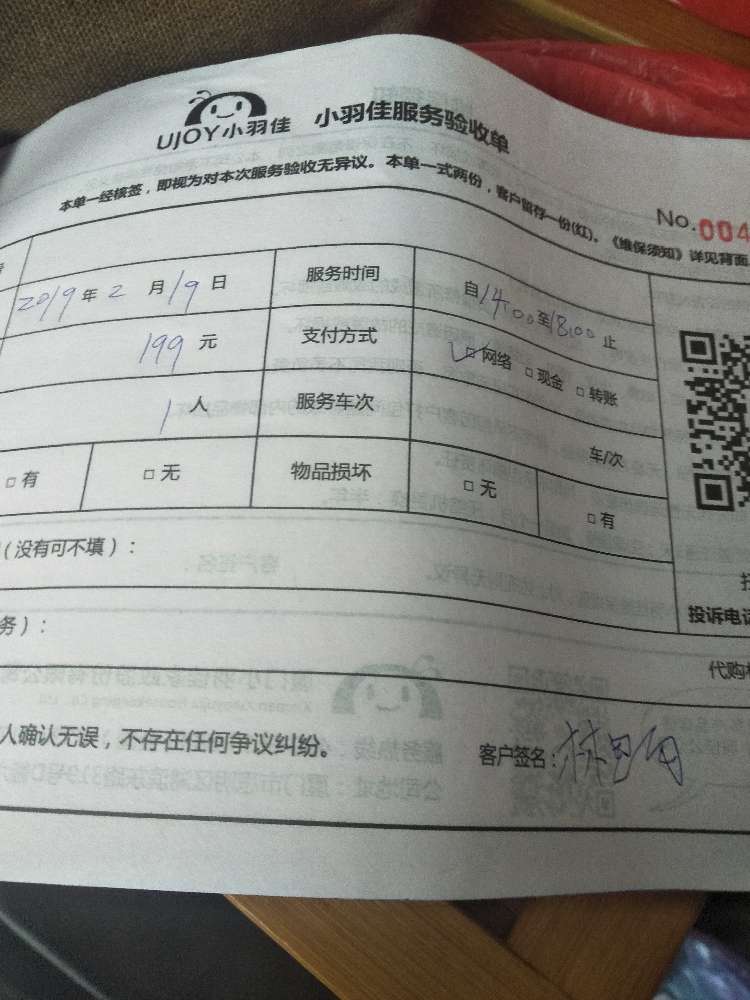 UJOY小羽佳 小羽佳服务验收单
本单一经核签，即视为对本次服务验收无异议。本单一式两份，客户留存一份(红)。《维保须知》详见背面
No.004
2019年2月19日 服务时间 自14:00至18:00止
199元 支付方式 ☑网络 □现金 □转账
1人 服务车次 车/次
□有 □无 物品损坏 □无 □有
(没有可不填)：
务)：
投诉电话
代购
人确认无误，不存在任何争议纠纷。 客户签名：